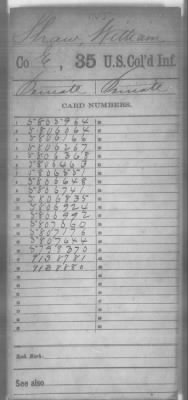 Shaw, William
Co. E, 35 U.S. Col'd Inf.
Private Private
CARD NUMBERS.
1 5805964
2 5806064
3 5806166
4 5806267
5 5806368
6 5806463
7 5806551
8 5806648
9 5806741
10 5806835
11 5806924
12 5806992
13 5807060
14 5807176
15 5807644
16 5799370
17 9138781
18 9138880
Book Mark:
See also